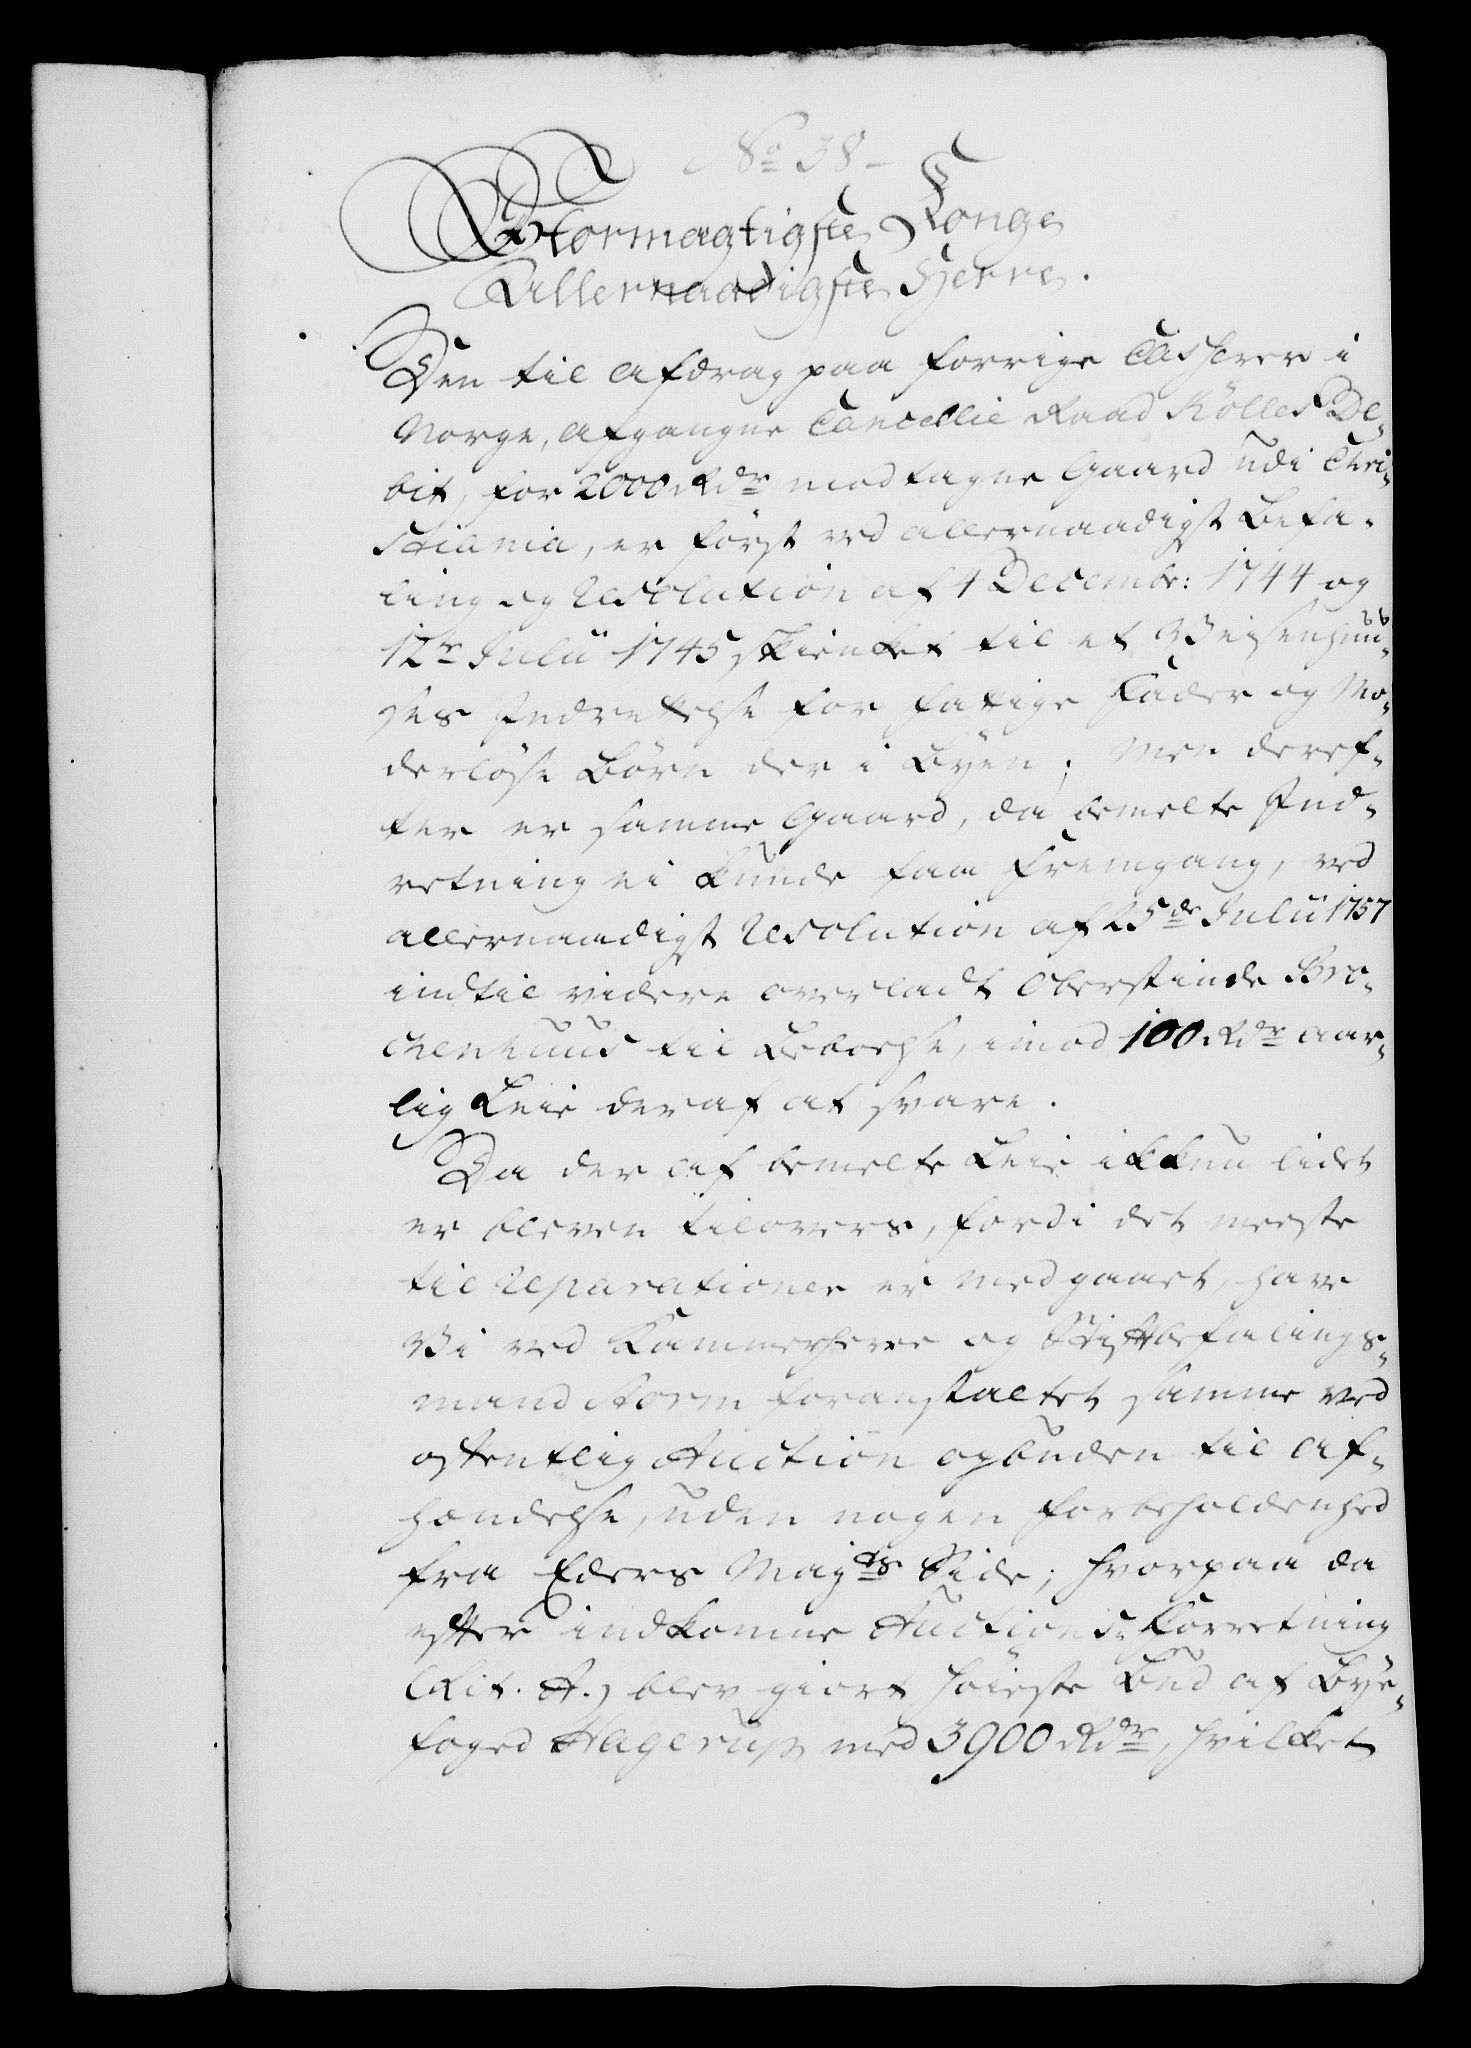 No 38-
Stormægtigste Konge
Allernaadigste Herre.
Den til Afdrag paa forrige Casserer i
Norge, afgangne Cancellie Raad Kölles De-
bit, for 2000 Rdr modtagne Gaard udi Chri-
stiania, er först ved allernaadigst Befa-
ling og Resolution af 4 Decembr: 1744 og
12te Julii 1745 skienket til et Weisenhuu-
ses Indrettelse for fattige Fader og Mo-
derlöse Börn der i Byen; Men deref-
ter er samme Gaard, da bemelte Ind-
retning ei kunde faa Fremgang, ved
allernaadigst Resolution af 25de Julii 1757
indtil videre overladt Oberstinde Bro-
chenhuus til Beboelse, imod 100 Rdr aar-
lig Leie deraf at svare.
Da der af bemelte Leie ikkun lidet
er bleven tilovers, fordi det meeste
til Reparationer er medgaaet, have
Vi ved Kammerherre og Stiftbefalings-
mand Storm foranstaltet samme ved
offentlig Auction opbuden til Af-
hændelse, uden nogen Forbeholdenhed
fra Eders Majts Side; hvorpaa da
efter indkomne Auctions-Forretning
(Lit. A.) blev giort höieste Bud af Bye-
foged Hagerup med 3900 Rdr, hvilket